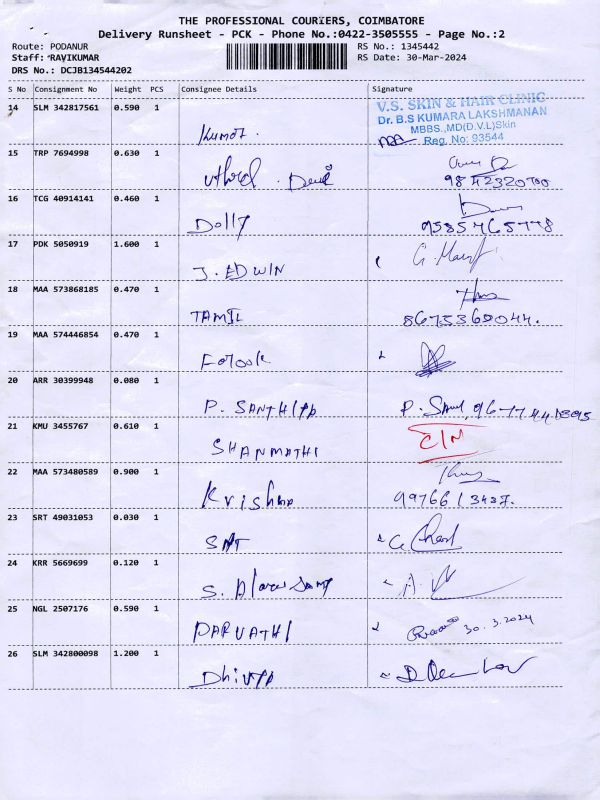 THE PROFESSIONAL COURIERS, COIMBATORE
Delivery Runsheet - PCK - Phone No.:0422-3505555 - Page No.:2
Route: PODANUR
RS No.: 1345442
Staff: RAVIKUMAR
RS Date: 30-Mar-2024
DRS No.: DCJB134544202
S No Consignment No Weight PCS Consignee Details Signature
14 SLM 342817561 0.590 1
Kumar.
V.S. SKIN & HAIR CLINIC
Dr. B.S KUMARA LAKSHMANAN
MBBS.,MD(D.V.L)Skin
Reg. No: 93544
15 TRP 7694998 0.630 1
Devi
9842320700
16 TCG 40914141 0.460 1
Dolly
9585765778
17 PDK 5050919 1.600 1
J. EDWIN
18 MAA 573868185 0.470 1
TAMIL
8675360044.
19 MAA 574446854 0.470 1
Farook
20 ARR 30399948 0.080 1
P. SANTHIYA
21 KMU 3455767 0.610 1
SHANMATHI
22 MAA 573480589 0.900 1
Krishna
9976613437.
23 SRT 49031053 0.030 1
24 KRR 5669699 0.120 1
25 NGL 2507176 0.590 1
PARVATHI
30.3.2024
26 SLM 342800098 1.200 1
Dhivya